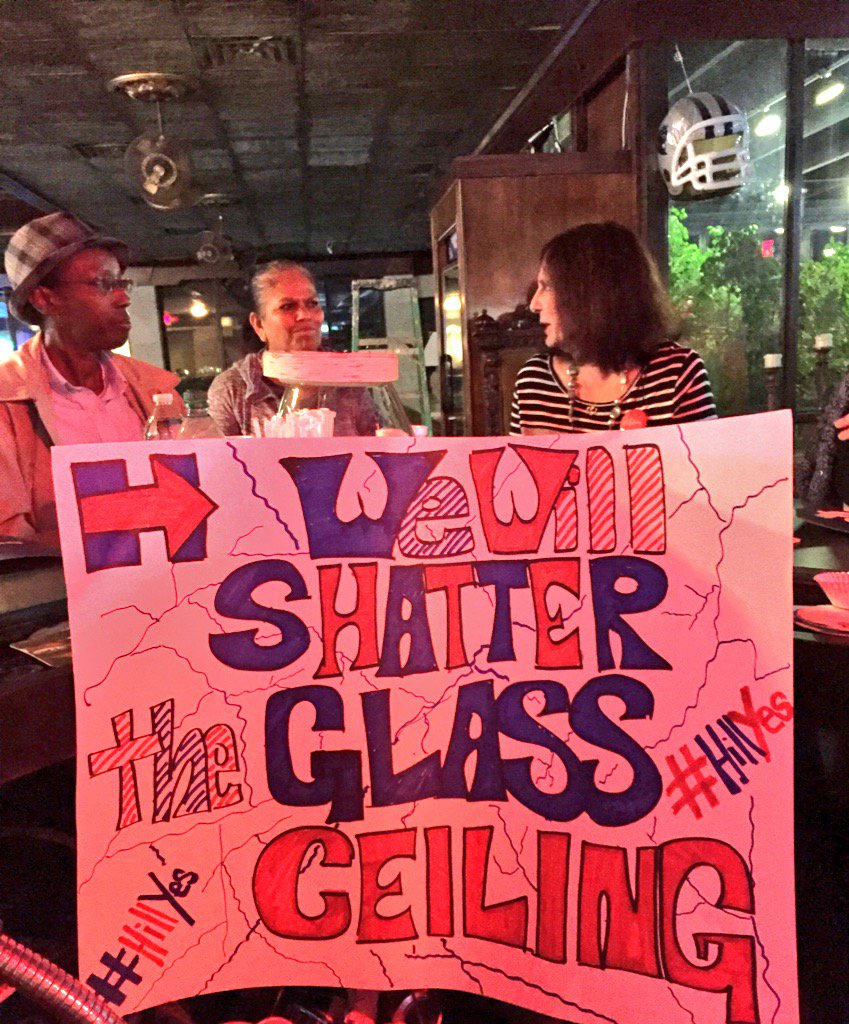 H We Will
SHATTER
the GLASS
#HillYes
CEILING
#HillYes